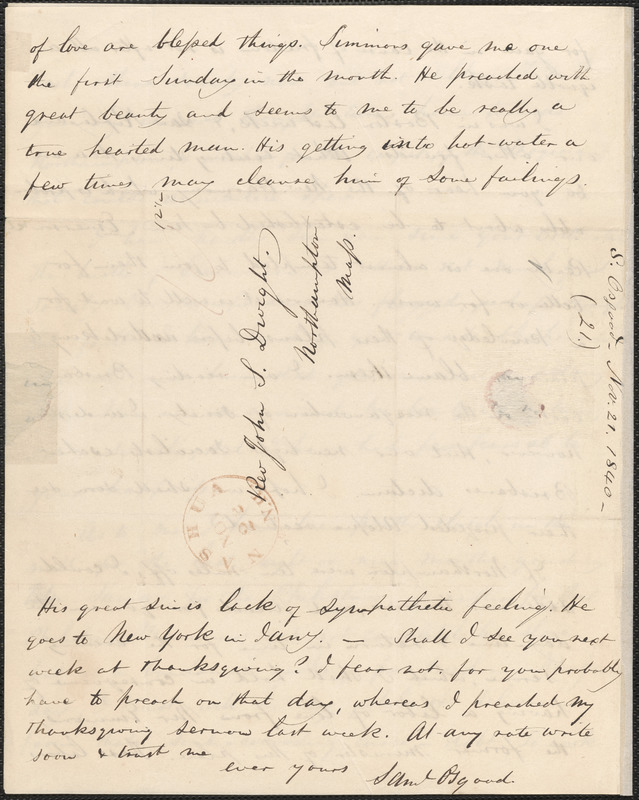 of love are blessed things. Simmons gave me one
the first Sunday in the month. He preached with
great beauty and seems to me to be really a
true hearted man. His getting into hot-water a
few times may cleanse him of some failings.
12½
Rev John S. Dwight.
Northampton
Mass.
S. Osgood - Nov. 21. 1840 -
(21.)
NASHUA
N.H.
NOV
His great sin is lack of sympathetic feeling. He
goes to New York in Jany. — Shall I see you next
week at Thanksgiving? I fear not. for you probably
have to preach on that day, whereas I preached my
Thanksgiving sermon last week. At any rate write
soon & trust me
ever yours
Saml Osgood.